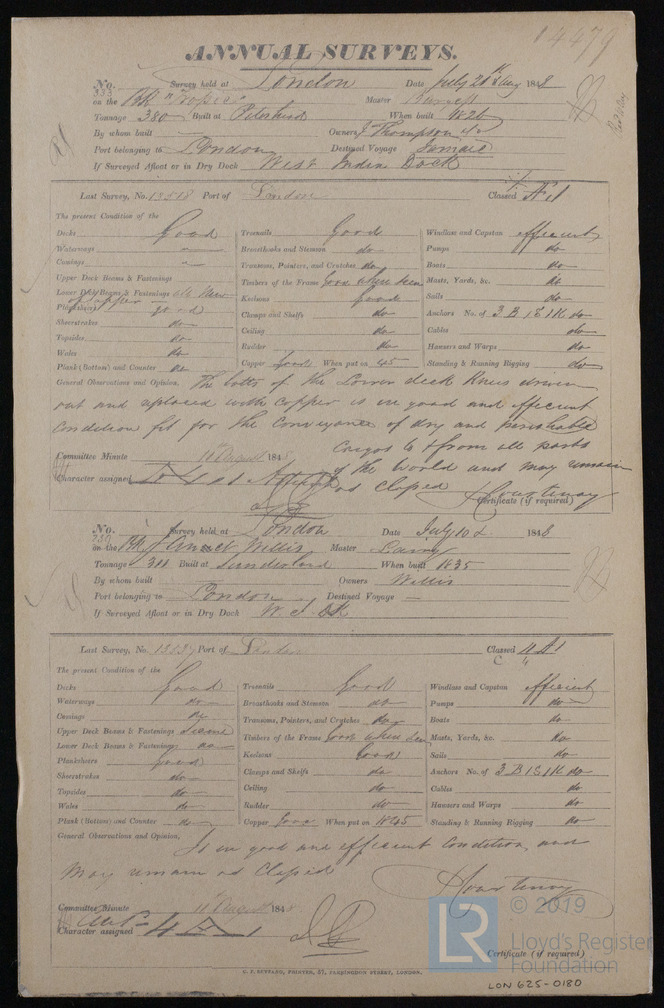 14479
ANNUAL SURVEYS.
No. 333 Survey held at London Date July 21 & Aug 1848
on the Bk "Tropic" Master Burgess
Tonnage 380 Built at Peterhead When built 1826
By whom built — Owners J Thompson
Port belonging to London Destined Voyage Jamaica
If Surveyed Afloat or in Dry Dock West India Dock
Last Survey, No. 13518 Port of London Classed Æ 1
The present Condition of the
Decks Good
Waterways "
Comings "
Upper Deck Beams & Fastenings
Lower Deck Beams & Fastenings
Planksheers good
Sheerstrakes do
Topsides do
Wales do
Plank (Bottom) and Counter do
Treenails Good
Breasthooks and Stemson do
Transoms, Pointers, and Crutches do
Timbers of the Frame Good where seen
Keelsons good
Clamps and Shelfs do
Ceiling do
Rudder do
Copper Good When put on 45
Windlass and Capstan efficient
Pumps do
Boats do
Masts, Yards, &c. do
Sails do
Anchors No. of 3 B 1 S 1 K do
Cables do
Hawsers and Warps do
Standing & Running Rigging do
General Observations and Opinion, The bolts of the Lower deck Knees driven
out and replaced with copper is in good and efficient
condition fit for the conveyance of dry and perishable
Cargos to & from all parts
of the World and may remain
as Clased
Committee Minute 11 August 1848
Character assigned
Courtenay
Certificate (if required)
No. Survey held at London Date July 10 1848
on the Bk Willis Master
Tonnage 311 Built at Sunderland When built 1835
By whom built Owners Willis
Port belonging to London Destined Voyage —
If Surveyed Afloat or in Dry Dock W. I. DK
Last Survey, No. Port of London Classed 4 A 1
The present Condition of the
Decks Good
Waterways do
Comings do
Upper Deck Beams & Fastenings
Lower Deck Beams & Fastenings
Planksheers Good
Sheerstrakes do
Topsides do
Wales do
Plank (Bottom) and Counter do
Treenails Good
Breasthooks and Stemson do
Transoms, Pointers, and Crutches do
Timbers of the Frame Good where seen
Keelsons Good
Clamps and Shelfs do
Ceiling do
Rudder do
Copper Good When put on 1845
Windlass and Capstan efficient
Pumps do
Boats do
Masts, Yards, &c. do
Sails do
Anchors No. of 3 B 1 S 1 K do
Cables do
Hawsers and Warps do
Standing & Running Rigging do
General Observations and Opinion, Is in good and efficient Condition, and
May remain as Clased
Courtenay
Committee Minute 11 August 1848
Character assigned 4 A 1
Certificate (if required)
LR © 2019
Lloyd's Register
Foundation
LON 625-0180